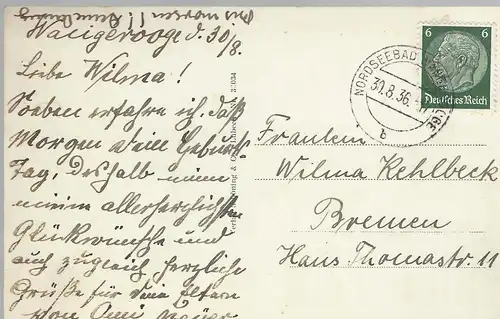 Wangerooge d. 30/8.
Liebe Wilma!
Soeben erfahre ich, daß
Morgen Dein Geburts-
Tag. Deshalb nimm
meine allerherzlichsten
Glückwünsche und
auch zugleich herzliche
Grüße für Deine Eltern
von
6 6
Deutsches Reich
NORDSEEBAD
30.8.36
b
Fräulein
Wilma Kehlbeck
Bremen
Hans Thomastr. 11